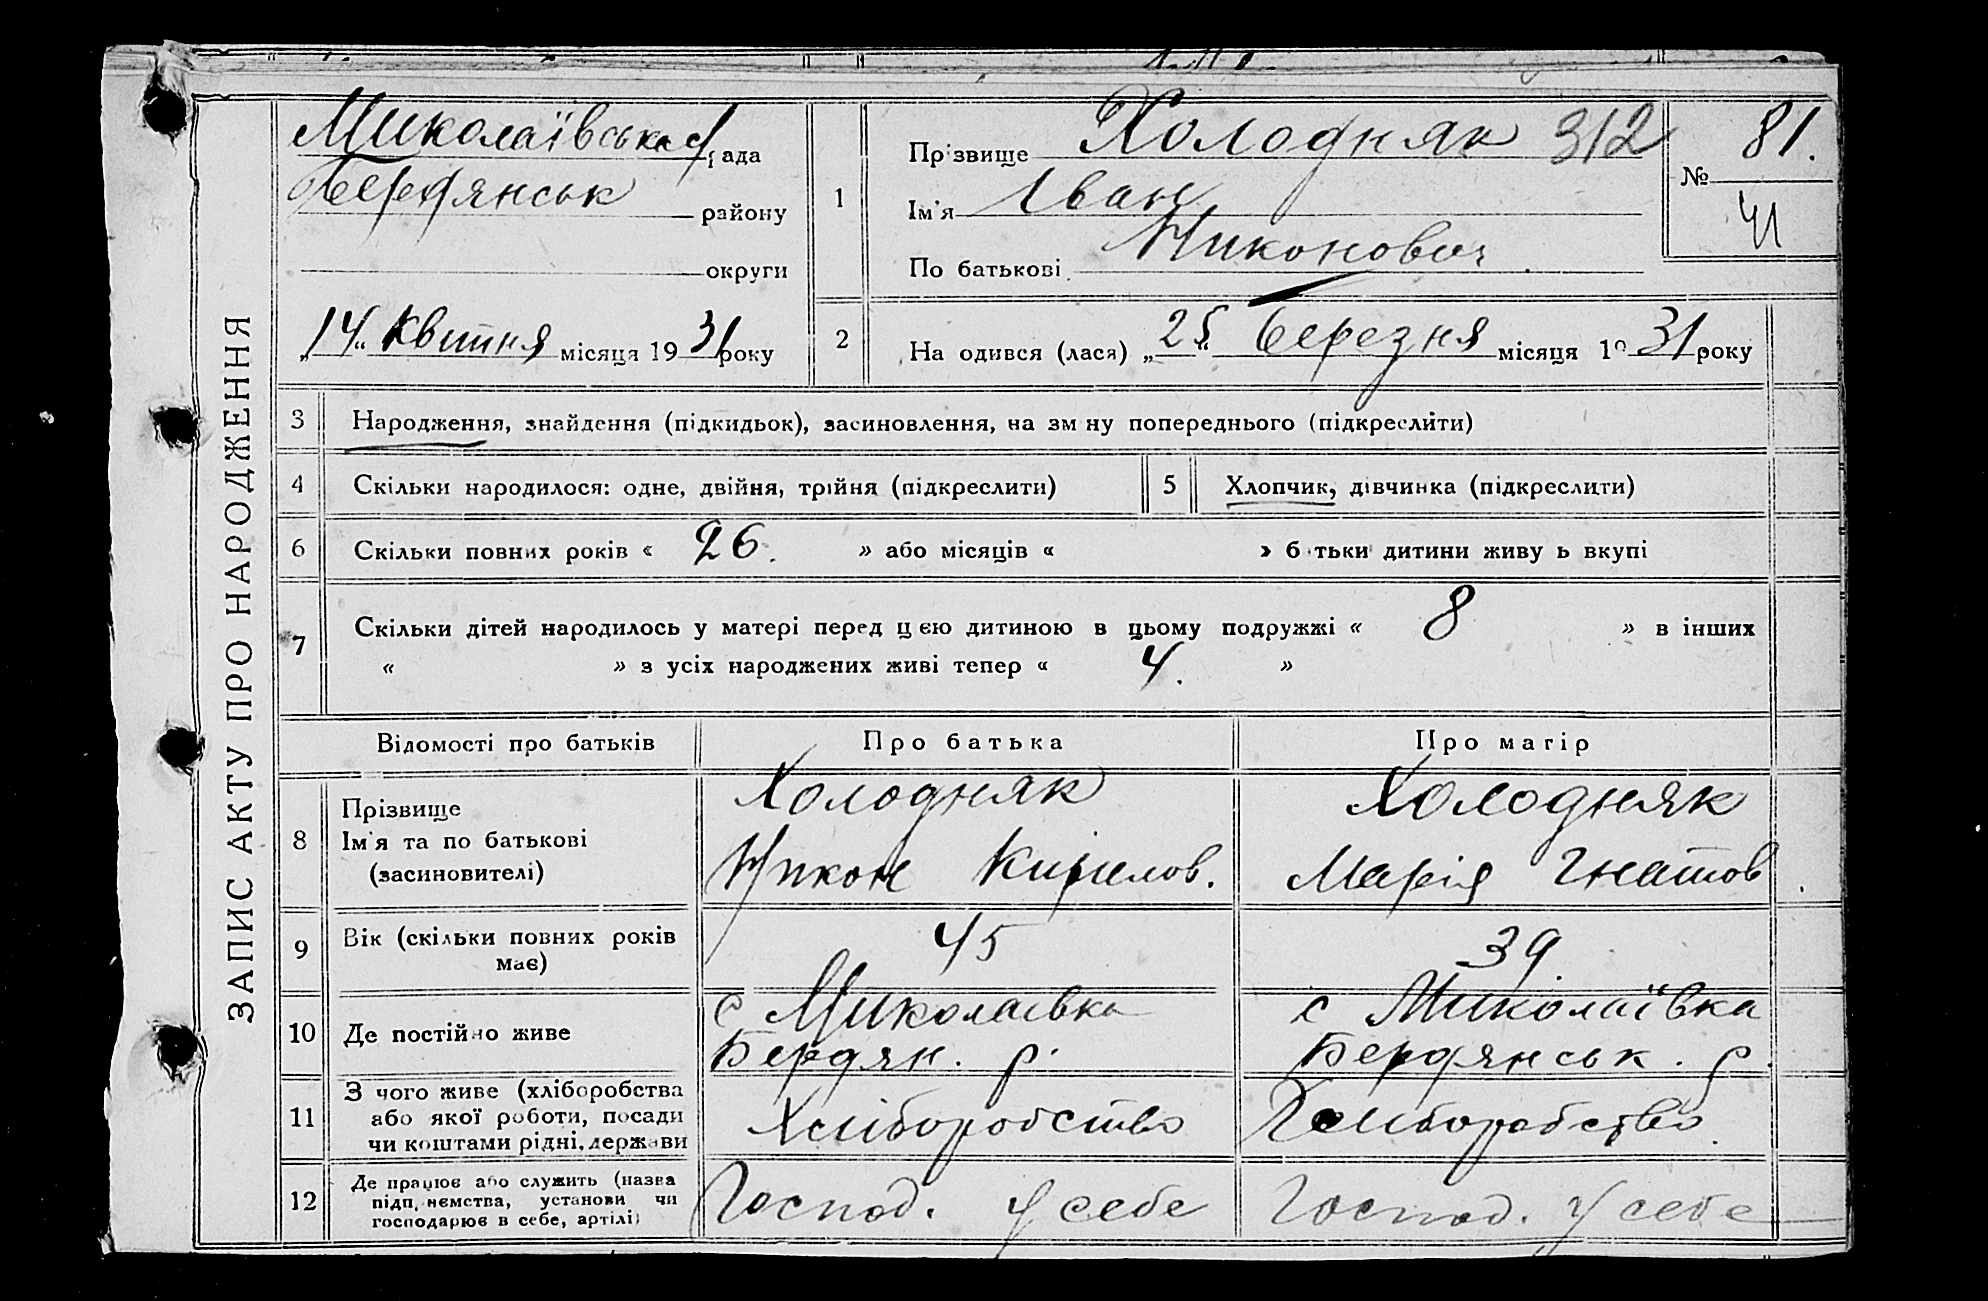 ЗАПИС АКТУ ПРО НАРОДЖЕННЯ
Миколаївська рада
Бердянськ району
округи
„14“ Квітня місяця 1931 року
1
Прізвище Холодняк 312
Ім'я Іван
По батькові Никонович
№ 81.
41
2
На одився (лася) „25“ березня місяця 1931 року
3 Народження, знайдення (підкидьок), засиновлення, на зм ну попереднього (підкреслити)
4 Скільки народилося: одне, двійня, трійня (підкреслити)
5 Хлопчик, дівчинка (підкреслити)
6 Скільки повних років « 26. » або місяців « » б тьки дитини живу ь вкупі
7 Скільки дітей народилось у матері перед цею дитиною в цьому подружжі « 8 » в інших
« » з усіх народжених живі тепер « 4. »
Відомості про батьків Про батька Про матір
8 Прізвище
Ім'я та по батькові
(засиновителі)
Холодняк
Никон Кирилов.
Холодняк
Марія Гнатов
9 Вік (скільки повних років
має)
45
39.
10 Де постійно живе
с Миколаївка
Бердян. р.
с Миколаївка
Бердянськ. р.
11 З чого живе (хліборобства
або якої роботи, посади
чи коштами рідні, держави
Хліборобство
Хліборобство
12 Де працює або служить (назва
підп, немства, установи чи
господарює в себе, артілі)
Господ. у себе
Господ. у себе